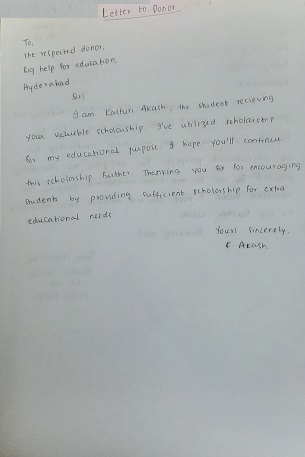 Letter to Donor
To,
The respected donor,
Big help for education,
Hyderabad.
Sir!
I am Kasturi Akash, the student recieving
your valuable scholarship I've utilized scholarship
for my educational purpose I hope you'll continue
this scholarship further Thanking you sir for encouraging
students by providing sufficient scholarship for extra
educational needs
Yours Sincerely,
K Akash